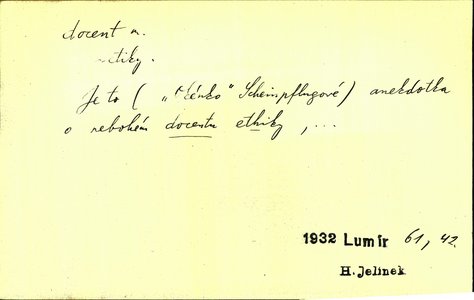 docent m.
etiky.
Je to ( „Okénko" Scheinpflugové) anekdotka
o nebohém docentu ethiky, ...
1932 Lumír 61, 42.
H. Jelínek